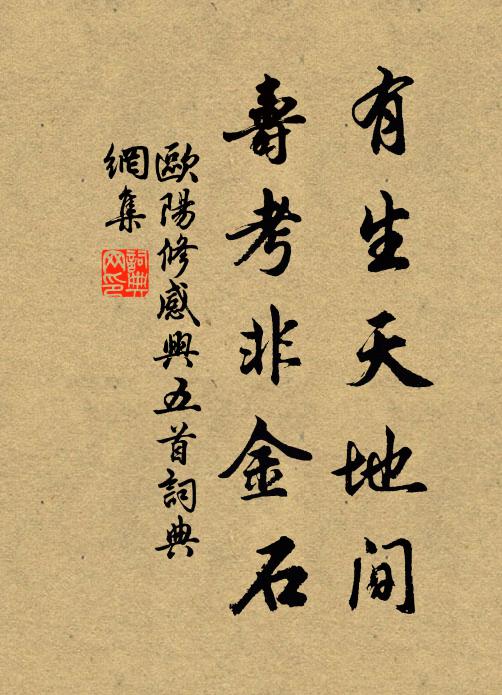 有生天地间
壽考非金石
歐陽修感興五首詞典
網集
詞典
网印